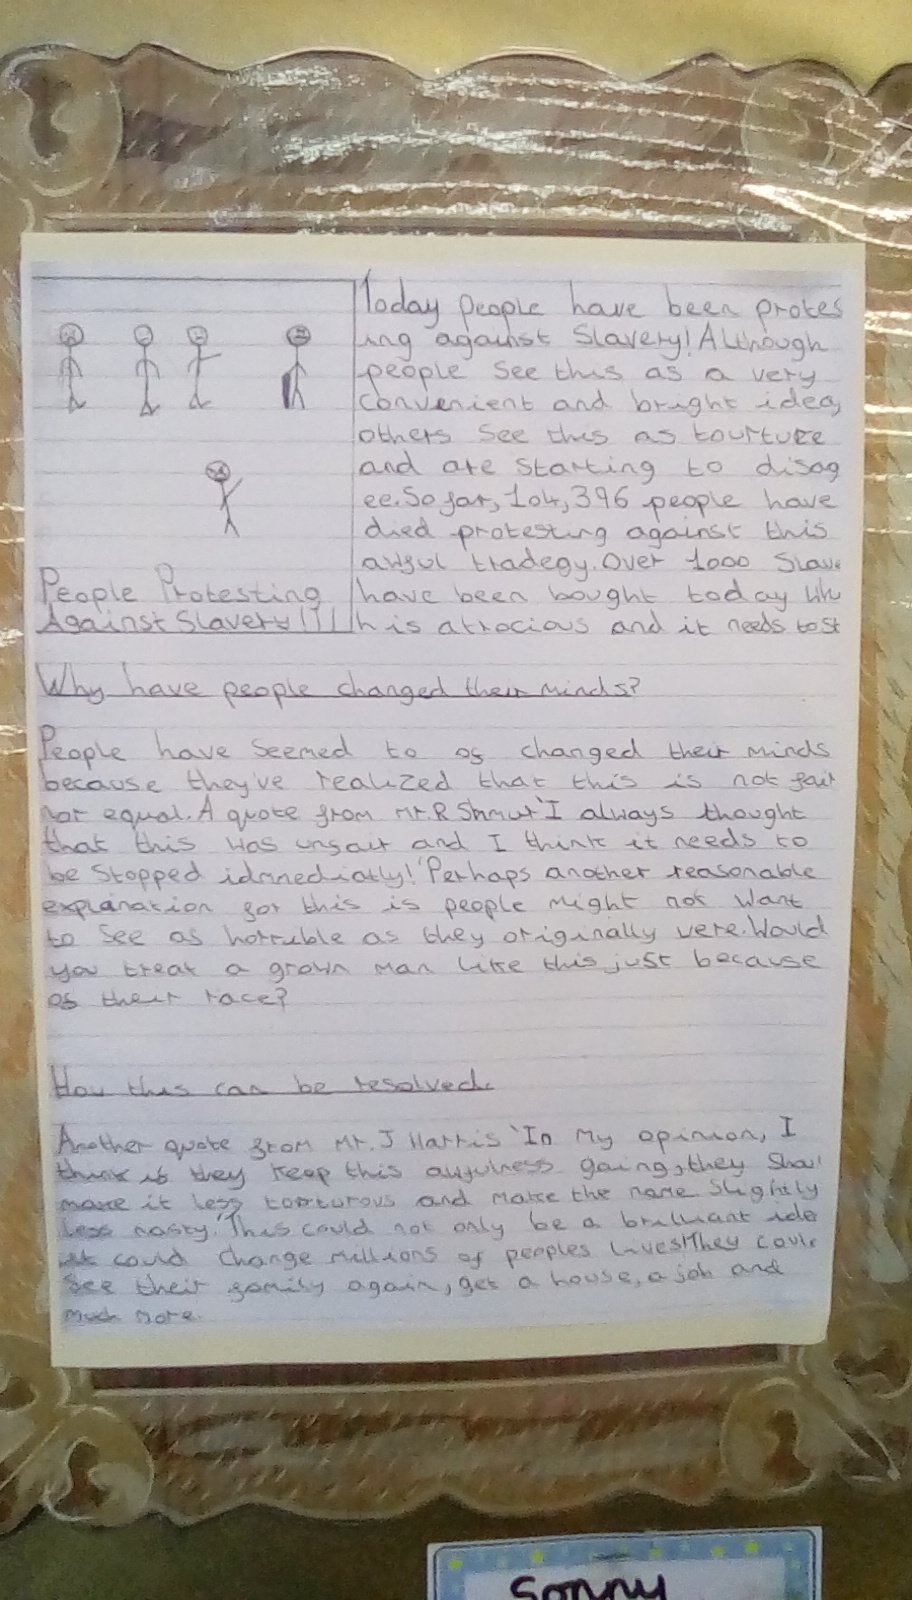 Today people have been protes
ing against Slavery! Although
people see this as a very
convenient and bright idea,
others see this as tourture
and are starting to disag
ee. So far, 104,396 people have
died protesting against this
awful tradegy. Over 1000 Slave
have been bought today
h is atrocious and it needs to st
People Protesting
Against Slavery!!!!
Why have people changed their minds?
People have seemed to of changed their minds
because they've realized that this is not fair
nor equal. A quote from Mr. R Shmut 'I always thought
that this was unfair and I think it needs to
be stopped idmmediatly!' Perhaps another reasonable
explanation for this is people might not want
to see as horrible as they originally were. Would
you treat a grown man like this just because
of their race?
How this can be resolved.
Another quote from Mr. J Harris 'In my opinion, I
think if they keep this awfulness going, they shoul
make it less tourturous and make the name slightly
less nasty.' This could not only be a brilliant ide
it could change millions of peoples lives! They could
see their family again, get a house, a job and
much more.
Sonny